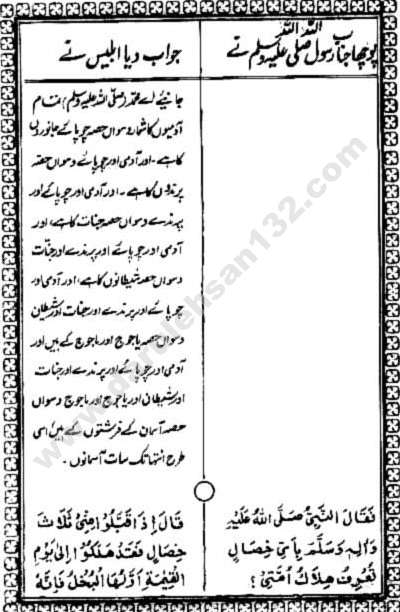 پوچھا جناب رسول اللہ صلی اللہ علیہ وسلم نے
جواب دیا ابلیس نے
جانیے اے محمد (صلی اللہ علیہ وسلم) تمام
آدمیوں کا شمار دسواں حصہ چوپائے جانوروں
کا ہے۔ اور آدمی اور چوپائے دسواں حصہ
پرندوں کا ہے۔ اور آدمی اور چوپائے اور
پرندے دسواں حصہ جنات کا ہے، اور
آدمی اور چوپائے اور پرندے اور جنات
دسواں حصہ شیطانوں کا ہے، اور آدمی اور
چوپائے اور پرندے اور جنات اور شیطان
دسواں حصہ یاجوج اور ماجوج کے ہیں اور
آدمی اور چوپائے اور پرندے اور جنات
اور شیطان اور یاجوج اور ماجوج دسواں
حصہ آسمان کے فرشتوں کے ہیں، اسی
طرح انتہا تک سات آسمانوں۔
فَقَالَ النَّبِيُّ صَلَّى اللهُ عَلَيْهِ
وَاٰلِهٖ وَسَلَّمَ بِاَيِّ خِصَالٍ
تَعْرِفُ هِلَاكَ اُمَّتِيْ؟
قَالَ اِذَا قَبِلُوْا مِنِّيْ ثَلَاثَ
خِصَالٍ فَقَدْ هَلَكُوْا اِلٰى يَوْمِ
الْقِيٰمَةِ اَوَّلُهَا الْبُخْلُ فَاِنَّهٗ
www.darulehsan132.com